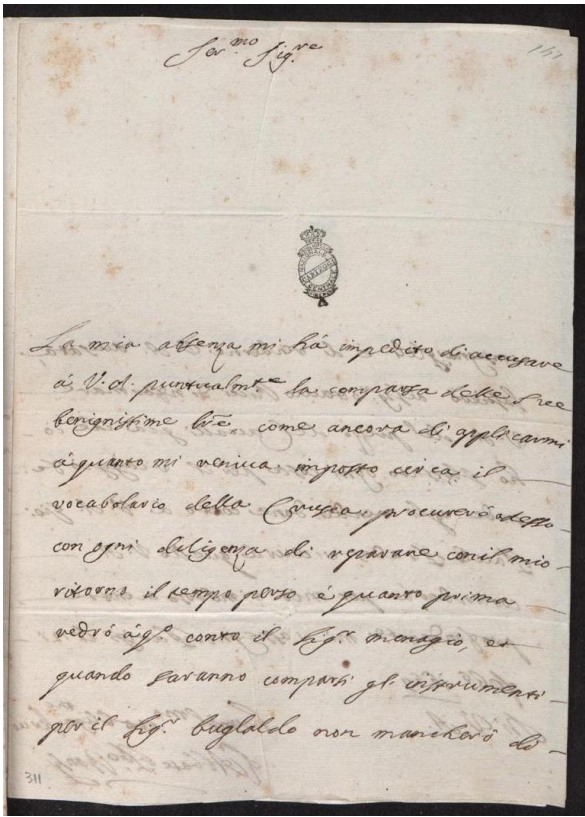 Ser.mo Sig.re
141
La mia absenza mi há impedito di accusare
á V. A. puntualm.te la comparsa delle sue
benignissime lr̃e come ancora di applicarmi
á quanto mi veniva imposto circa il
vocabolario della Crusca procureró adesso
con ogni diligenza di reparare con il mio
ritorno il tempo perso é quanto prima
vedró á q.o conto il Sig.r menagio, et
quando saranno comparsi gl'instrumenti
per il Sig.r buglaldo non mancheró di
311